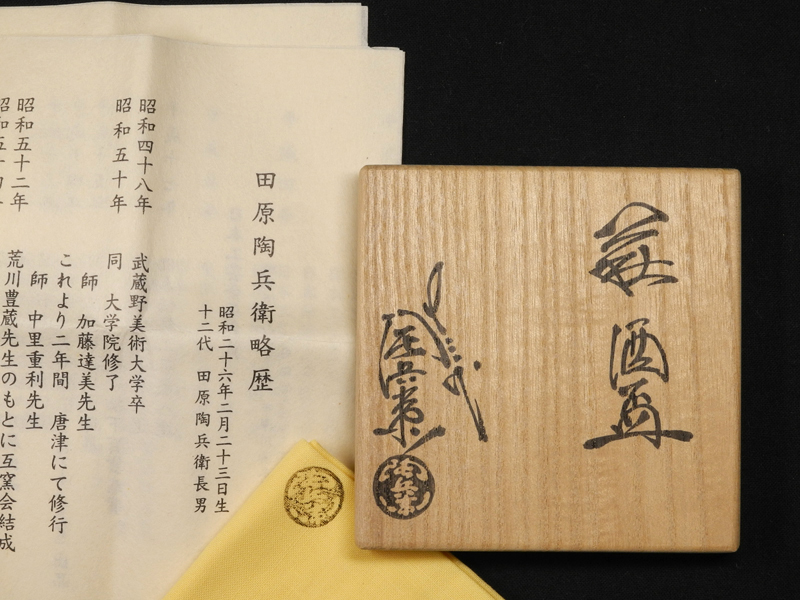 田原陶兵衛略歴
昭和二十六年二月二十三日生
十二代 田原陶兵衛長男
昭和四十八年 武蔵野美術大学卒
昭和五十年 同 大学院修了
師 加藤達美先生
これより二年間 唐津にて修行
師 中里重利先生
昭和五十二年 荒川豊蔵先生のもとに互窯会結成
萩 酒盃
陶兵衛
陶兵衛